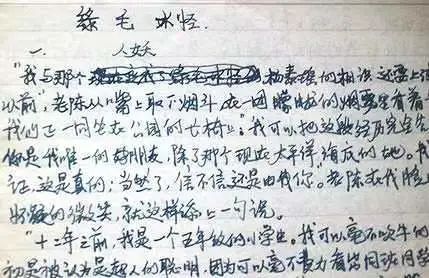 绿毛水怪
一、 人妖
“我与那个杨素瑶的相识还要上溯
以前”，老陈从嘴上取下烟斗在一团朦胧的烟雾里看着
我们正一同坐在公园的长椅上：“我可以把这段经历完全告
你是我唯一的好朋友，除了那个现在太平洋海底的她。我
证，这是真的；当然了，信不信还是由你。老陈在我脸上
好疑的微笑，就这样添上一句说。
“十二年之前，我是一个五年级的小学生。我可以毫不吹牛的
初是被认为是超人的聪明，因为可以毫不费力看出同班同学